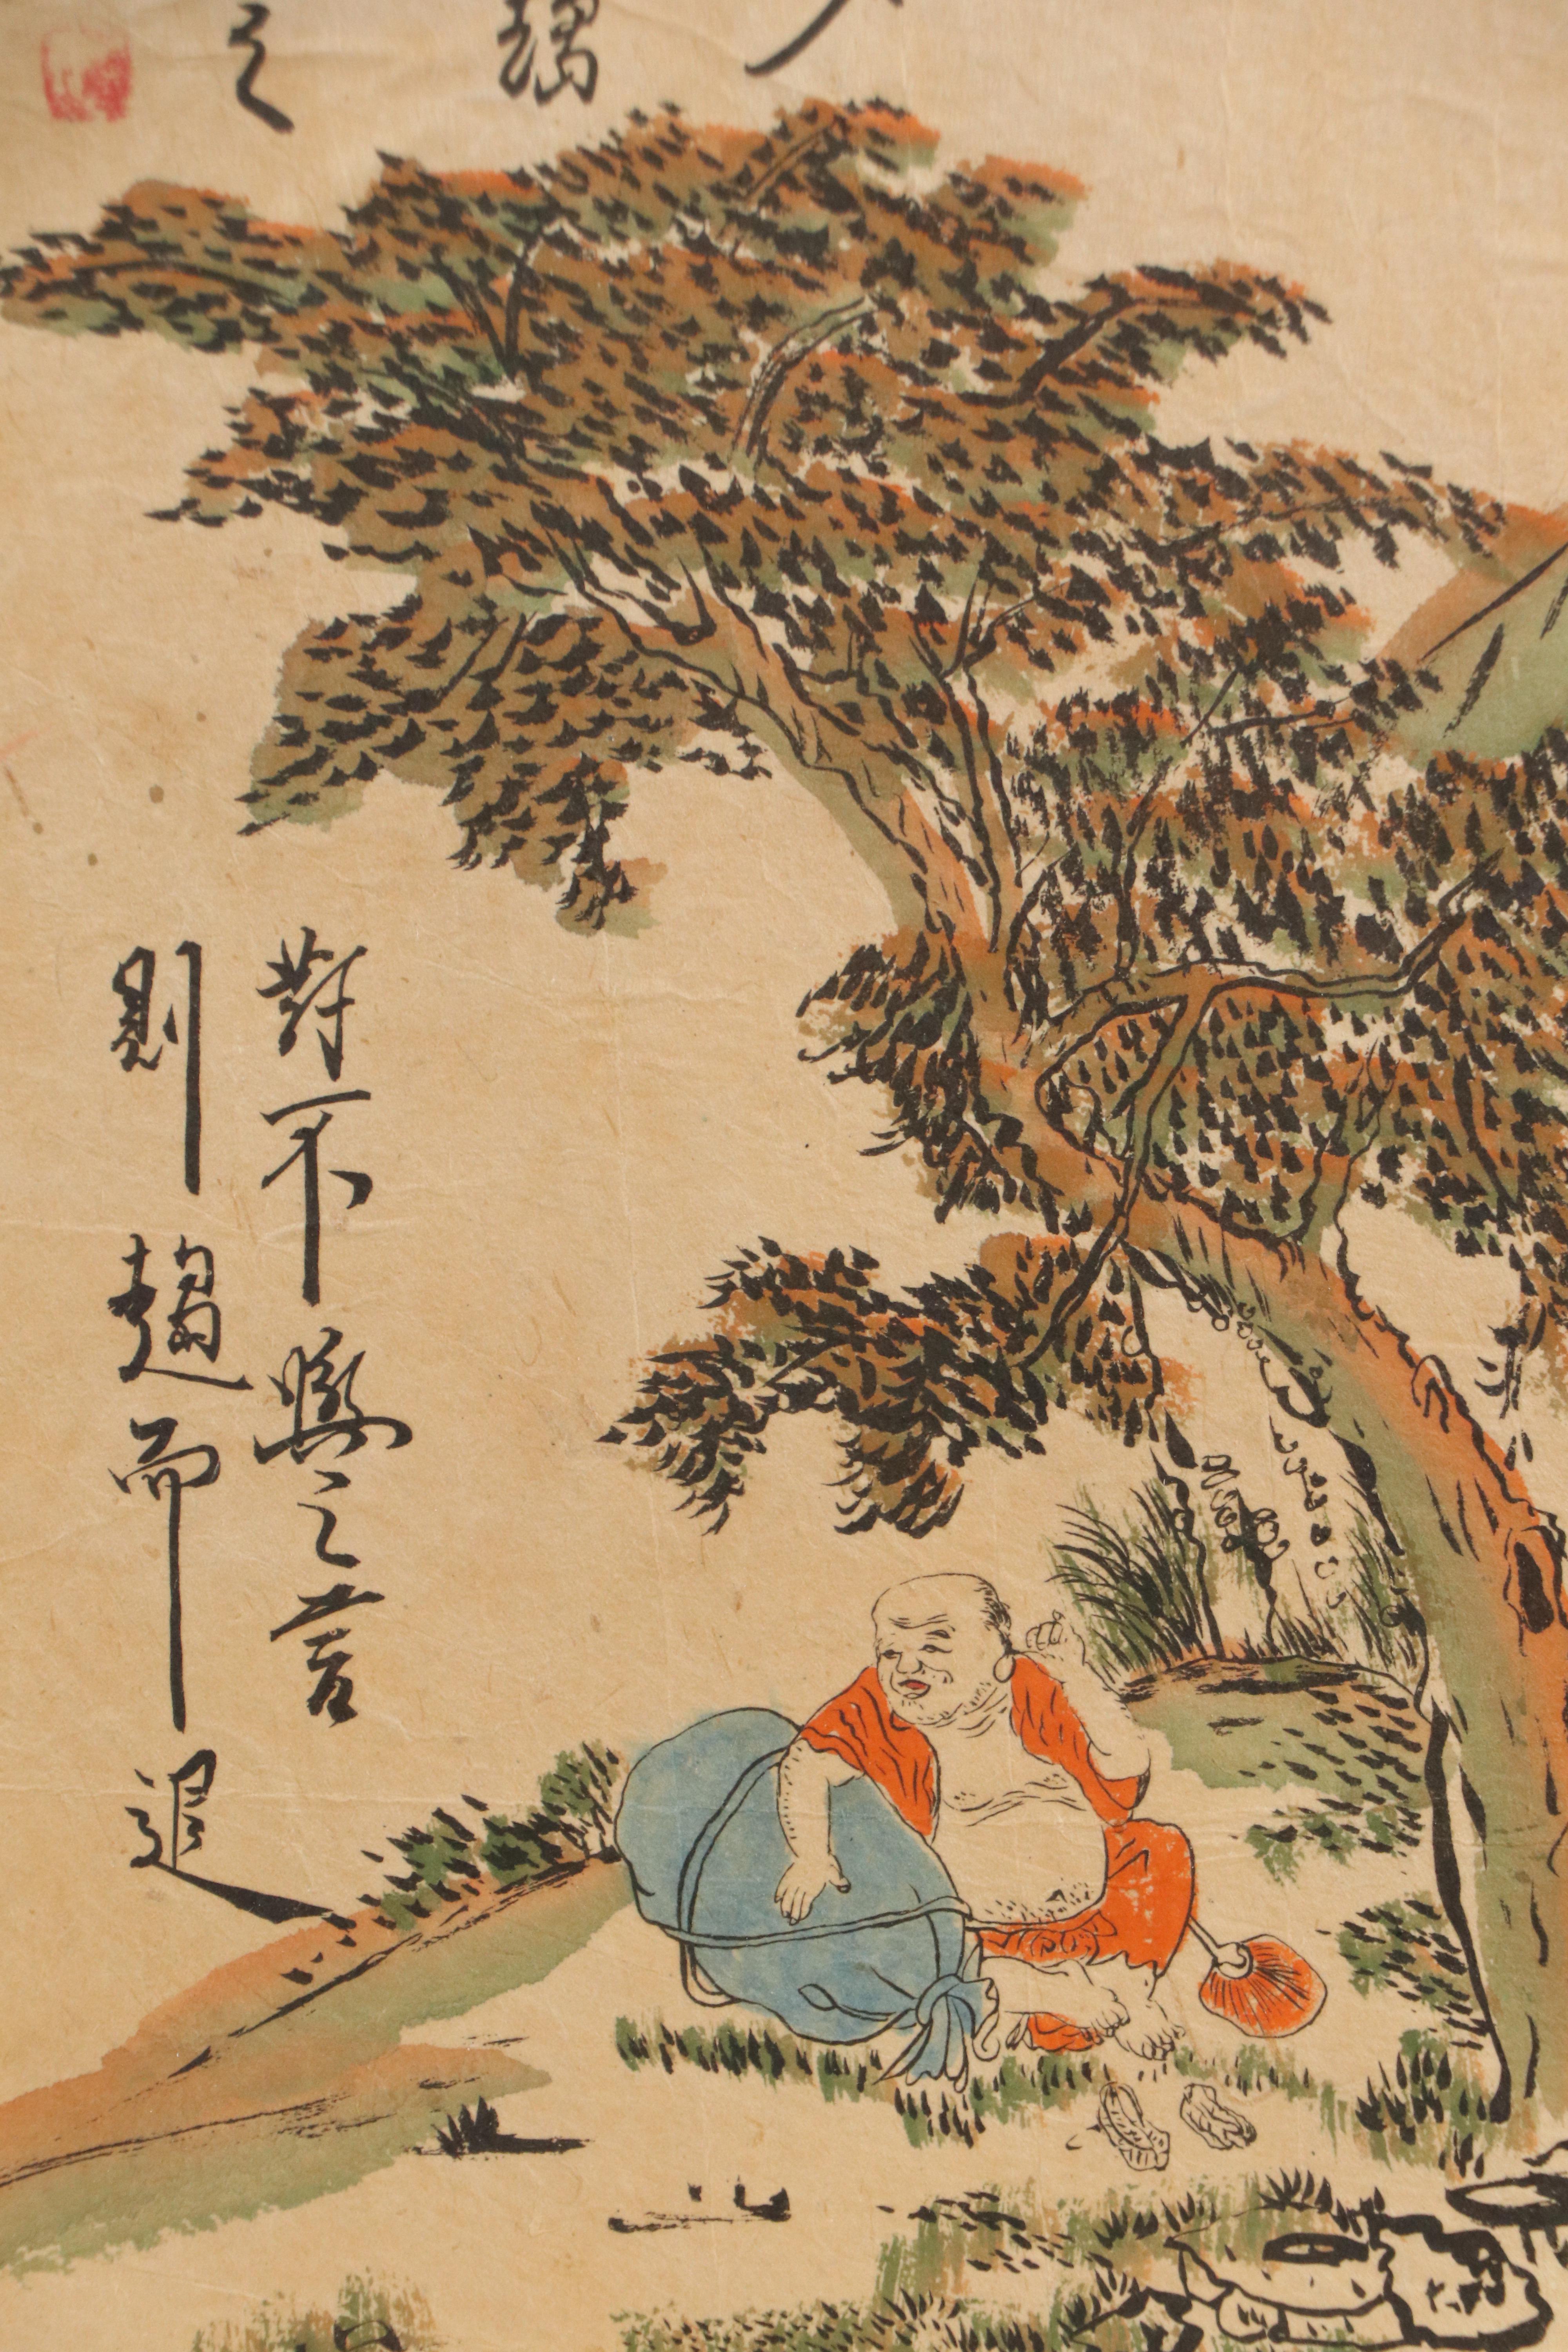 對不與之言
則趨而退